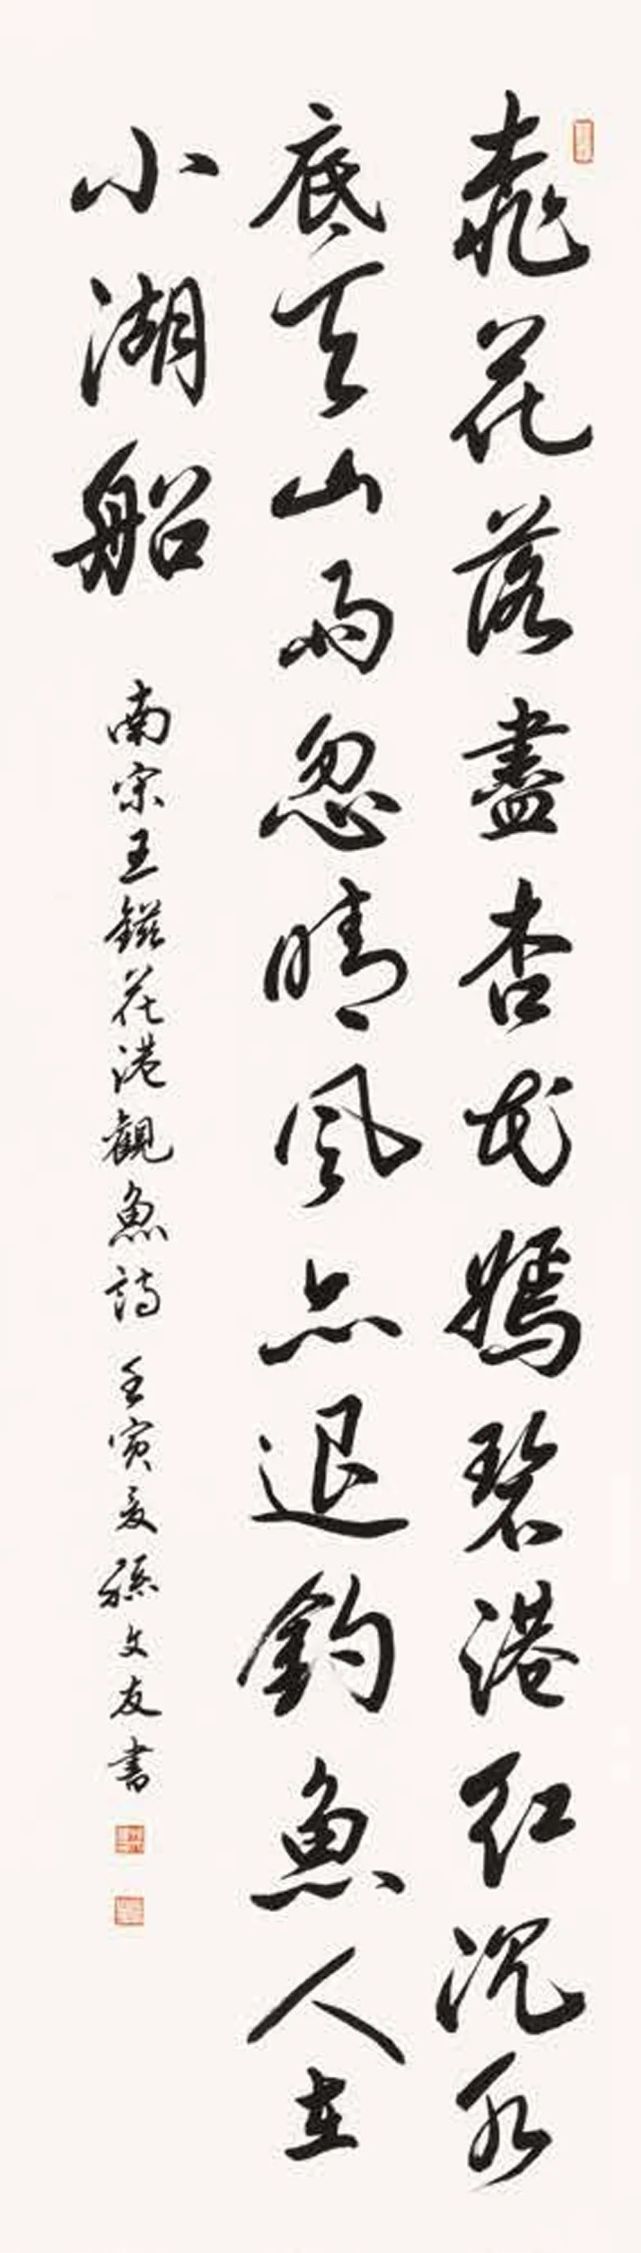 桃花落盡杏花嫣碧港紅沉水
底天山雨忽晴風亦退釣魚人在
小湖船
南宋王鎡花港觀魚詩 壬寅夏孫文友書